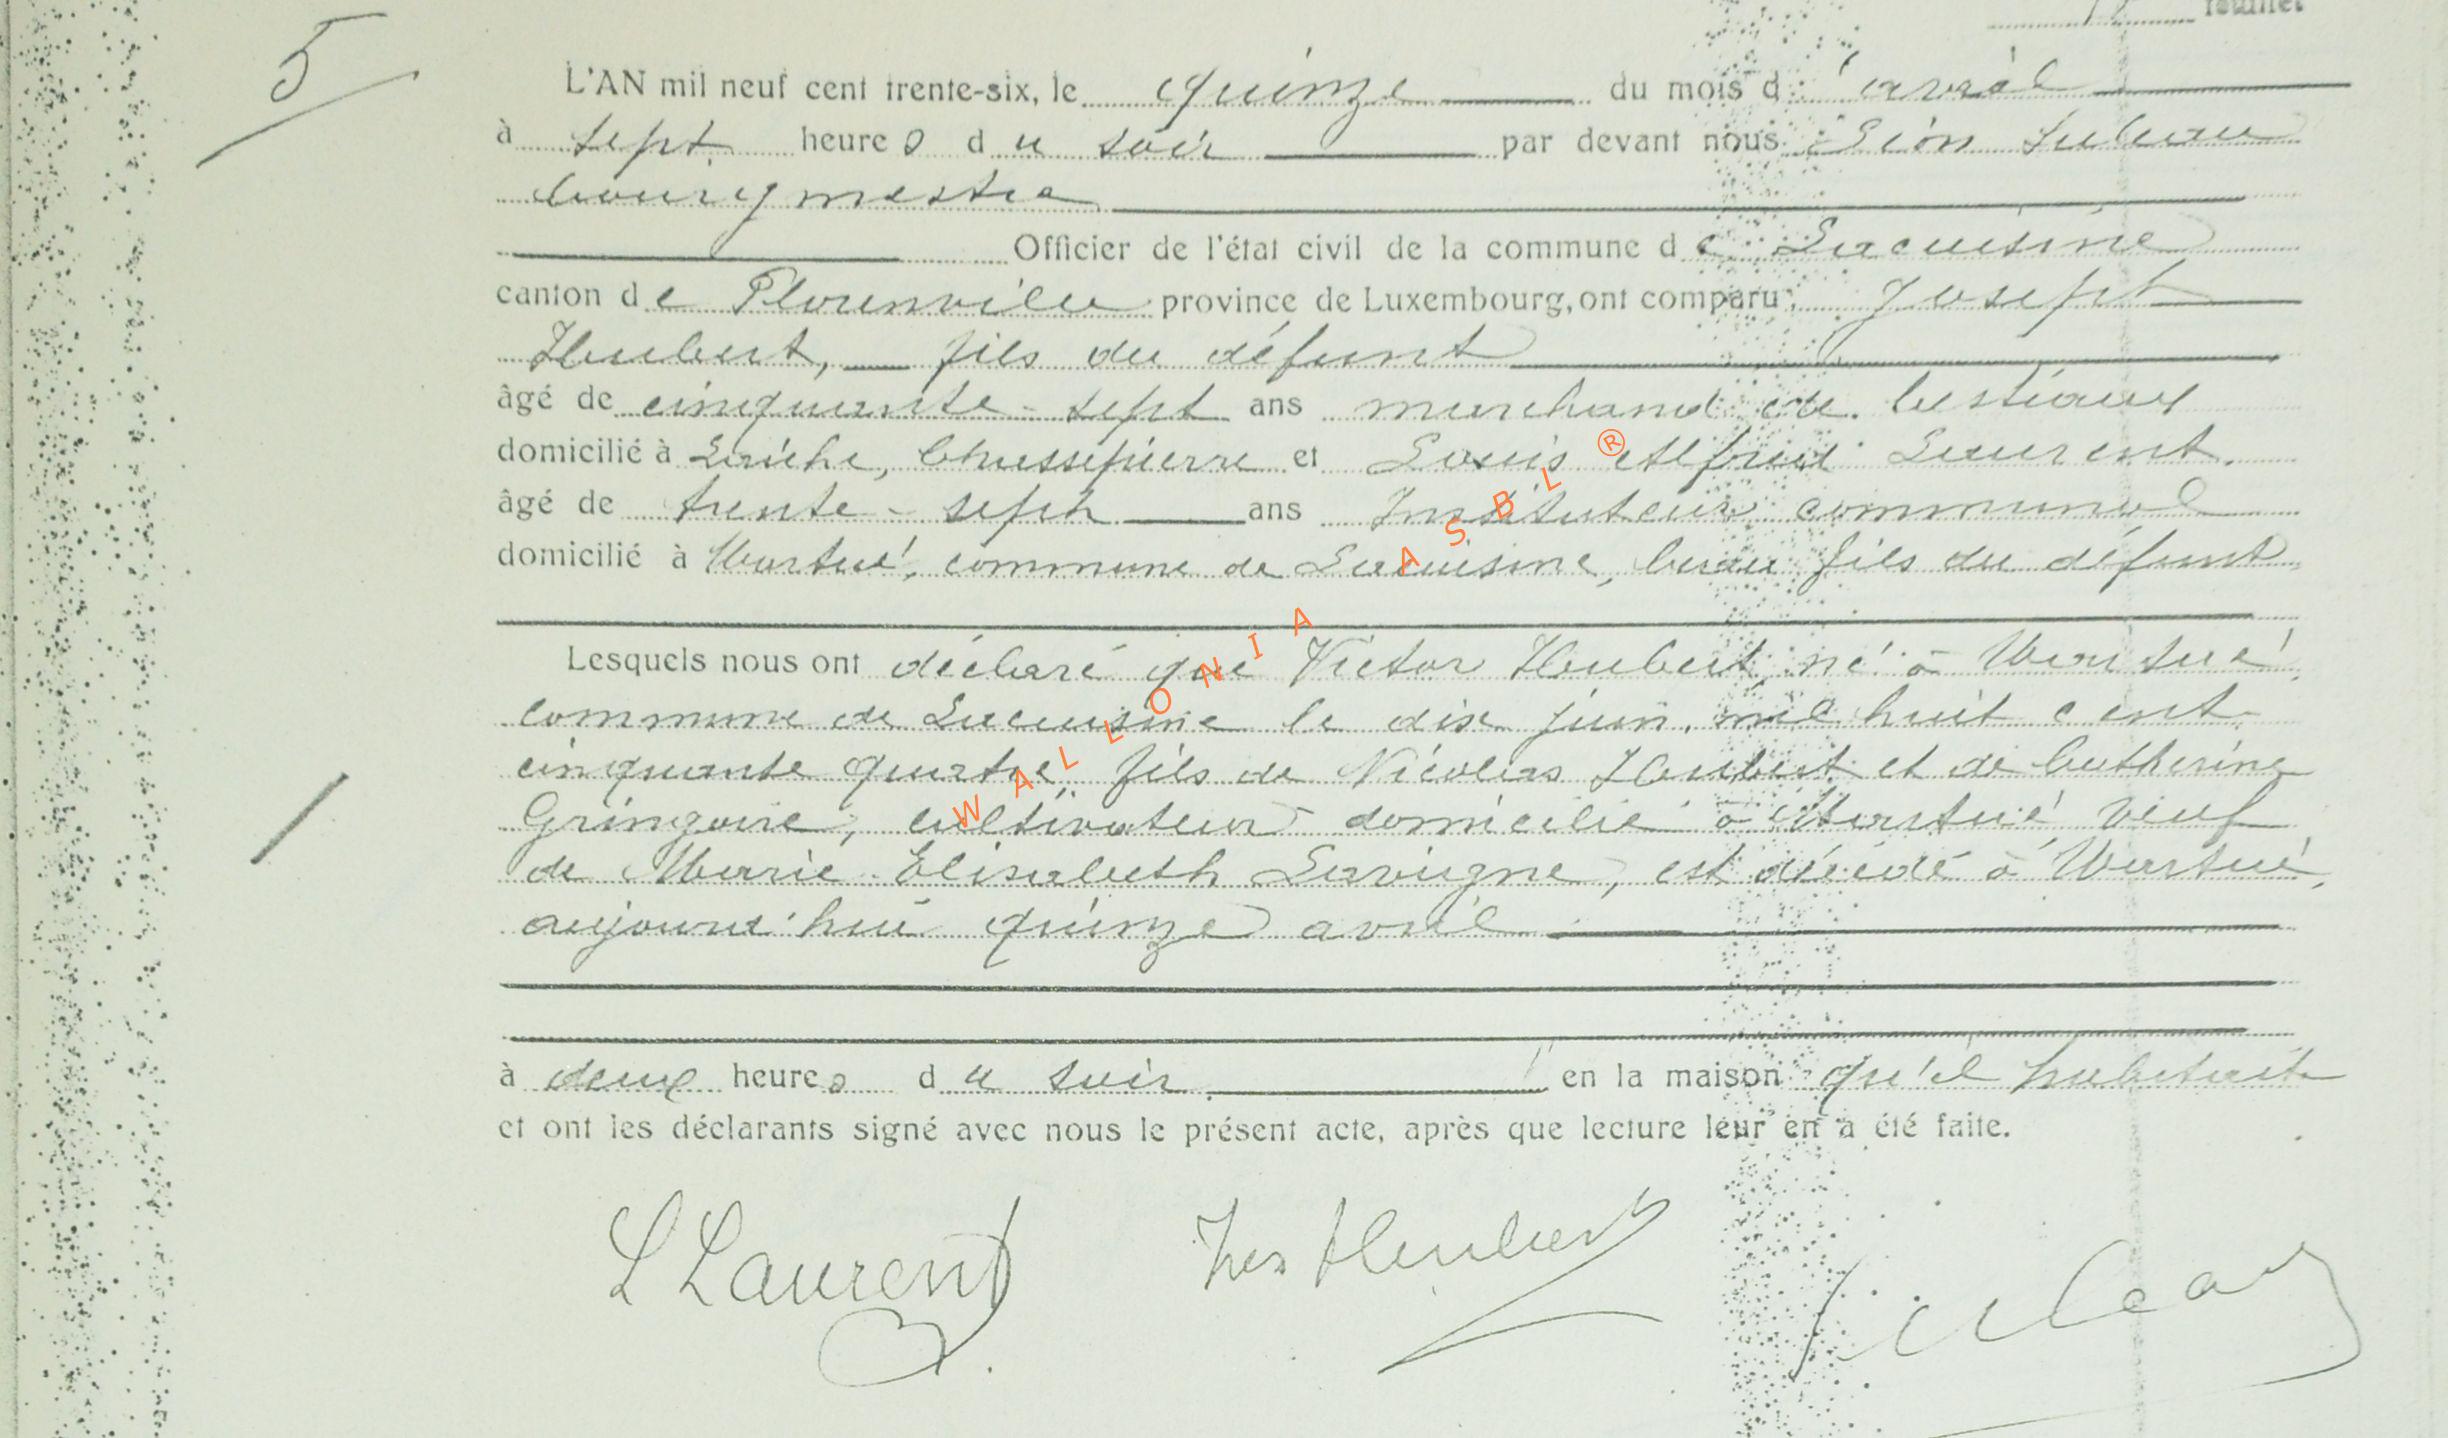 feuillet
5
L'AN mil neuf cent trente-six, le quinze du mois d'avril
à sept heures du soir par devant nous Léon Lubau
bourgmestre
Officier de l'état civil de la commune de Lacuisine
canton de Florenville province de Luxembourg, ont comparu Joseph
Hubert, fils du défunt
âgé de cinquante-sept ans marchand de bestiaux
domicilié à Laiche, Chassepierre et Louis Alfred Laurent.
âgé de trente-sept ans Instituteur communal
domicilié à Martué, commune de Lacuisine, beau fils du défunt
Lesquels nous ont déclaré que Victor Hubert né à Martué,
commune de Lacuisine le dix juin, mil huit cent
cinquante quatre, fils de Nicolas Hubert et de Catherine
Gringoire, cultivateur domicilié à Martué veuf
de Marie Elisabeth Lavigne, est décédé à Martué,
aujourd'hui quinze avril
à deux heures du soir en la maison qu'il habitait
et ont les déclarants signé avec nous le présent acte, après que lecture leur en a été faite.
L Laurent Hubert
WALLONIA ASBL ®